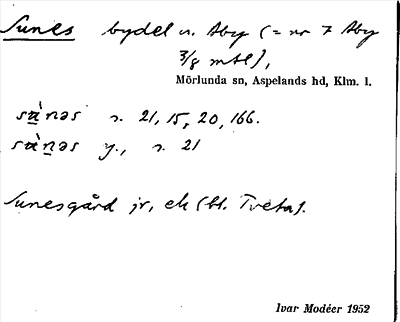 Sunes bydel u. Åby (= nr 7 Åby
3/8 mtl),
Mörlunda sn, Aspelands hd, Klm. l.
sʉ̀nəs s. 21, 15, 20, 166.
sʉ̀nəs y., s. 21
Sunesgård jr, ek (bl. Tveta).
Ivar Modéer 1952